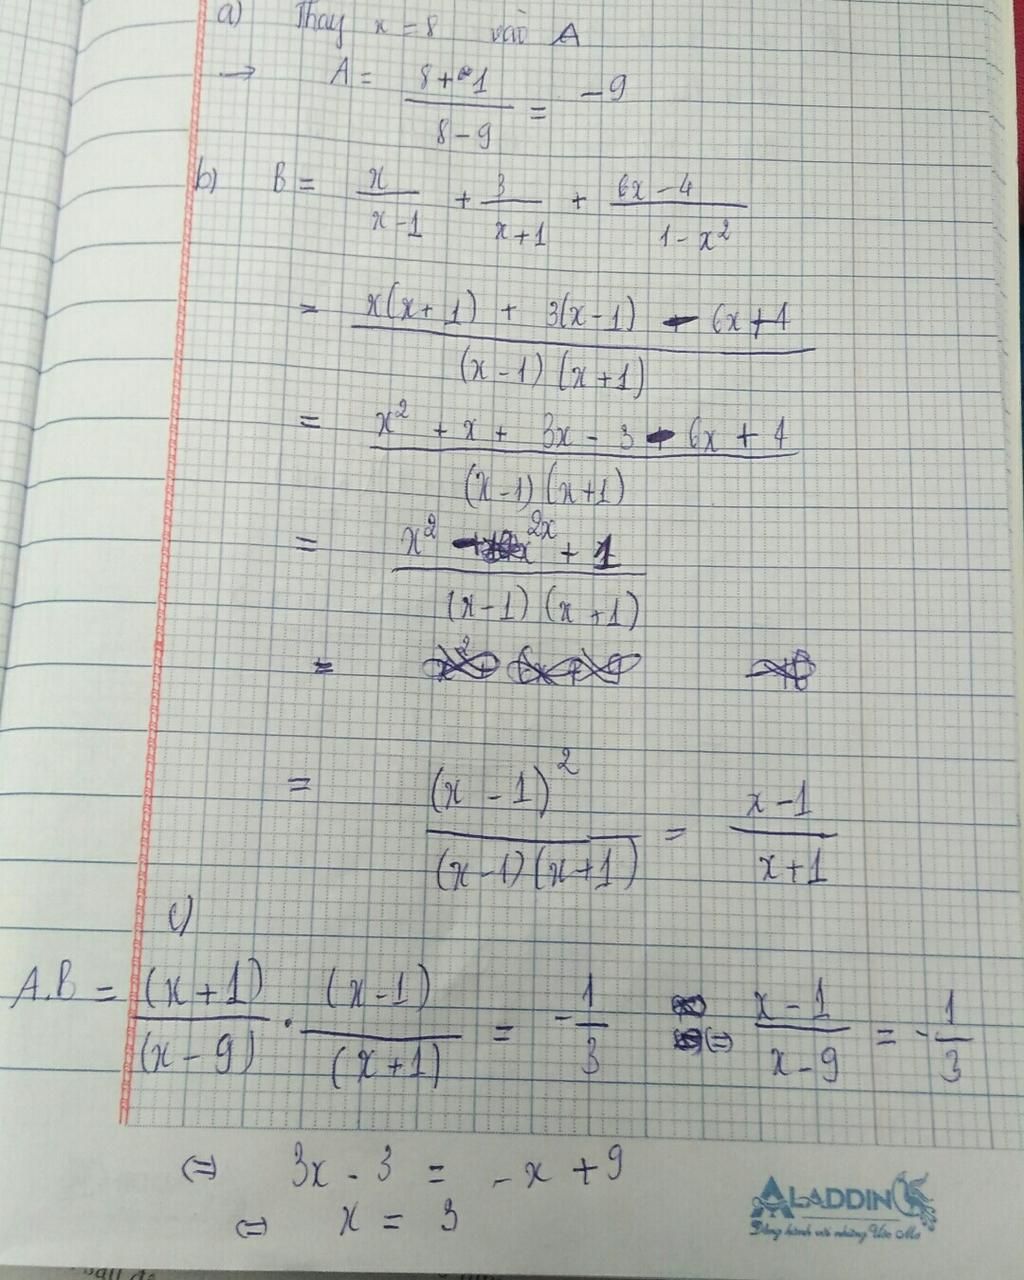 a) Thay x = 8 vào A
→ A = (8+1)/(8-9) = -9
b) B = x/(x-1) + 3/(x+1) + (6x-4)/(1-x²)
= (x(x+1) + 3(x-1) - 6x+4)/((x-1)(x+1))
= (x² + x + 3x - 3 - 6x + 4)/((x-1)(x+1))
= (x² - 2x + 1)/((x-1)(x+1))
=
= (x-1)²/((x-1)(x+1)) = (x-1)/(x+1)
c)
A.B = (x+1)/(x-9) . (x-1)/(x+1) = -1/3 (=) (x-1)/(x-9) = -1/3
(=) 3x - 3 = -x + 9
(=) x = 3
ALADDIN
Đồng hành với những Ước Mơ